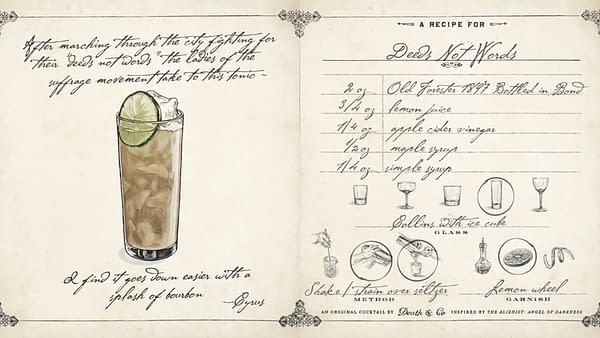 After marching through the city fighting for
their "deeds not words" the ladies of the
suffrage movement take to this tonic –
I find it goes down easier with a
splash of bourbon
– Cyrus
A RECIPE FOR
Deeds Not Words
2 oz Old Forester 1897 Bottled in Bond
3/4 oz lemon juice
1/4 oz apple cider vinegar
1/2 oz maple syrup
1/4 oz simple syrup
Collins with ice cube
GLASS
Shake / strain over seltzer
METHOD
Lemon wheel
GARNISH
AN ORIGINAL COCKTAIL BY Death & Co INSPIRED BY THE ALIENIST: ANGEL OF DARKNESS